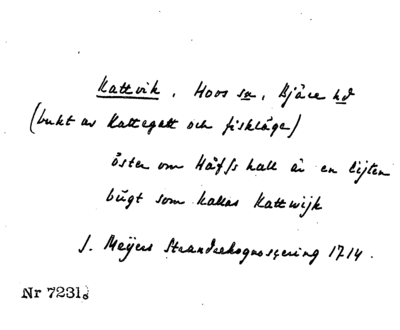 Kattvik, Hovs sn, Bjäre hd
(bukt av Kattegatt och fiskläge)
östen om Håfs hall är en lijten
bugt som kallas Kattwijk
J. Meijers Strandrekognoscering 1714.
Nr 7231.